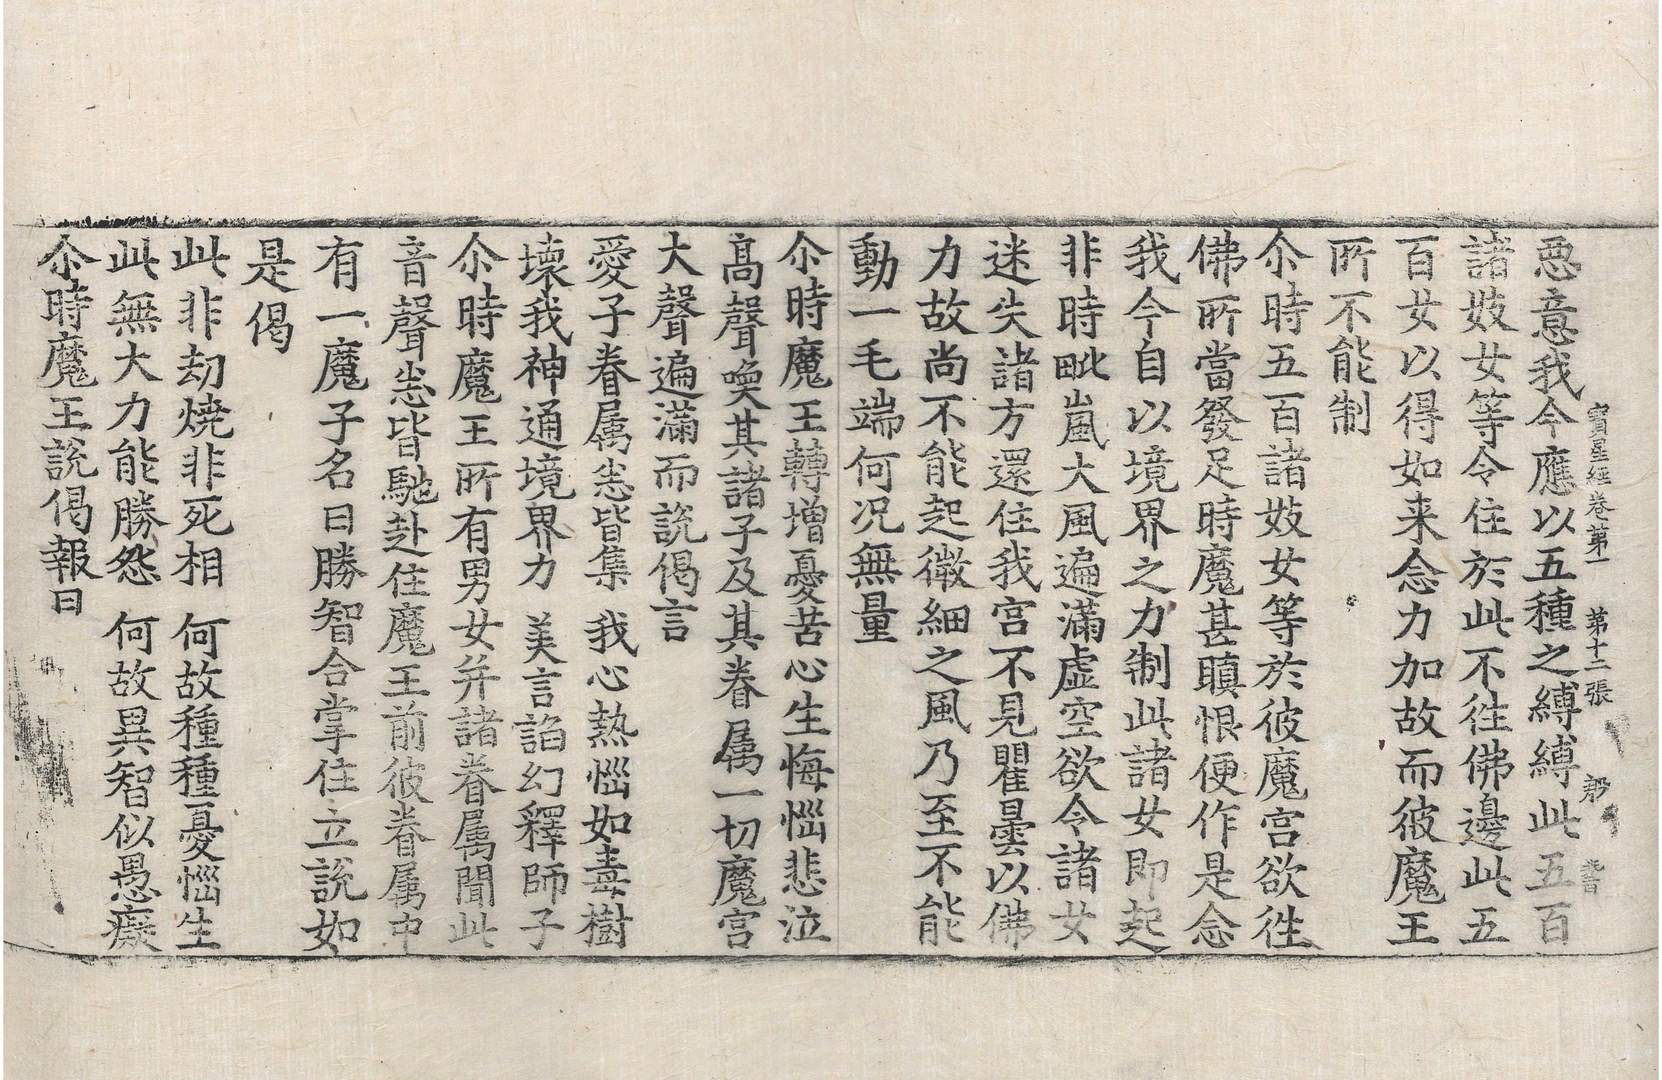 寶星經卷第一 第十二張
惡意我今應以五種之縛縛此五百
諸妓女等令住於此不往佛邊此五
百女以得如来念力加故而彼魔王
所不能制
尒時五百諸妓女等於彼魔宫欲往
佛所當發足時魔甚瞋恨便作是念
我今自以境界之力制此諸女即起
非時毗嵐大風遍滿虚空欲令諸女
迷失諸方還住我宫不見瞿曇以佛
力故尚不能起微細之風乃至不能
動一毛端何况無量
尒時魔王轉增憂苦心生悔惱悲泣
髙聲喚其諸子及其眷属一切魔宫
大聲遍滿而說偈言
愛子眷属悉皆集 我心熱惱如毒樹
壊我神通境界力 美言諂幻釋師子
尒時魔王所有男女并諸眷属聞此
音聲悉皆馳赴住魔王前彼眷属中
有一魔子名曰勝智合掌住立說如
是偈
此非劫燒非死相 何故種種憂惱生
此無大力能勝怨 何故異智似愚癡
尒時魔王說偈報曰